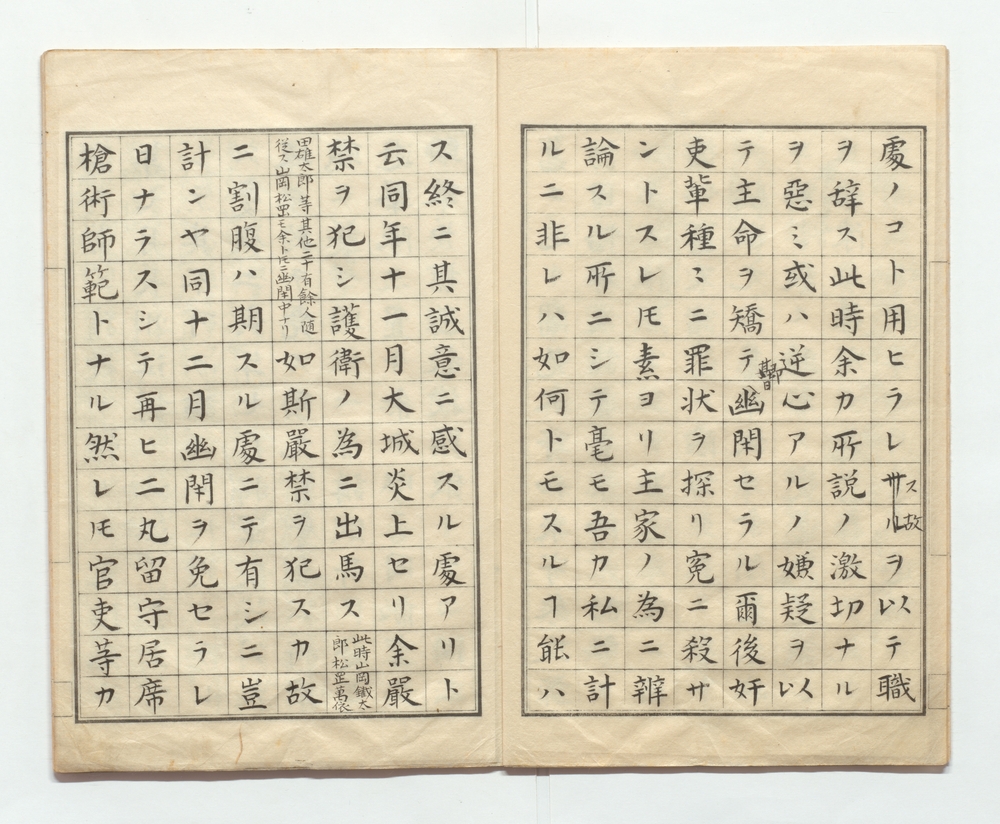 處ノコト用ヒラレサルヲ以テ職
ス故
ヲ辞ス此時余カ所説ノ激切ナル
ヲ惡ミ或ハ逆心アルノ嫌疑ヲ以
テ主命ヲ矯テ幽閇セラル爾後奸
吏輩種ミニ罪状ヲ探リ冤ニ殺サ
ントスレ𪜈素ヨリ主家ノ為ニ辨
論スル所ニシテ毫モ吾カ私ニ計
ルニ非レハ如何トモスルヿ能ハ
ス終ニ其誠意ニ感スル處アリト
云同年十一月大城炎上セリ余嚴
禁ヲ犯シ護衛ノ為ニ出馬ス
此時山岡鐵太
郎松罡萬依
田雄太郎等其他二十有餘人随
従ス山岡松罡モ余ト𪜈ニ幽閇中ナリ
如斯嚴禁ヲ犯スカ故
ニ割腹ハ期スル處ニテ有シニ豈
計ンヤ同十二月幽閇ヲ免セラレ
日ナラスシテ再ヒ二丸留守居席
槍術師範トナル然レ𪜈官吏等カ